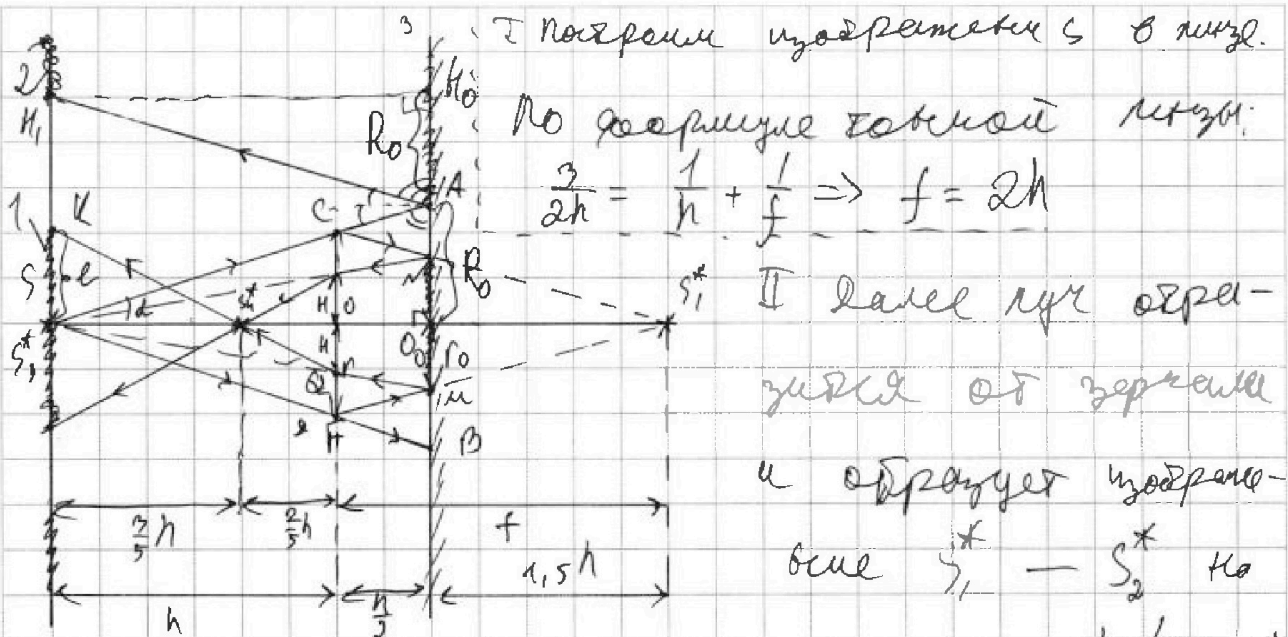 I Построим изображение S в линзе.
По формуле тонкой линзы:
3/2h = 1/h + 1/f => f = 2h
II Далее луч отра-
зится от зеркала
и образует изображе-
ние S₁* — S₂* на
3
2
H₁
H₀
R₀
A
C
1
K
S
l
α
R₀
N
S₁*
H
O
H
O₀
r₀
M
Q
B
H
3/5 h
2/5 h
f
1,5h
h